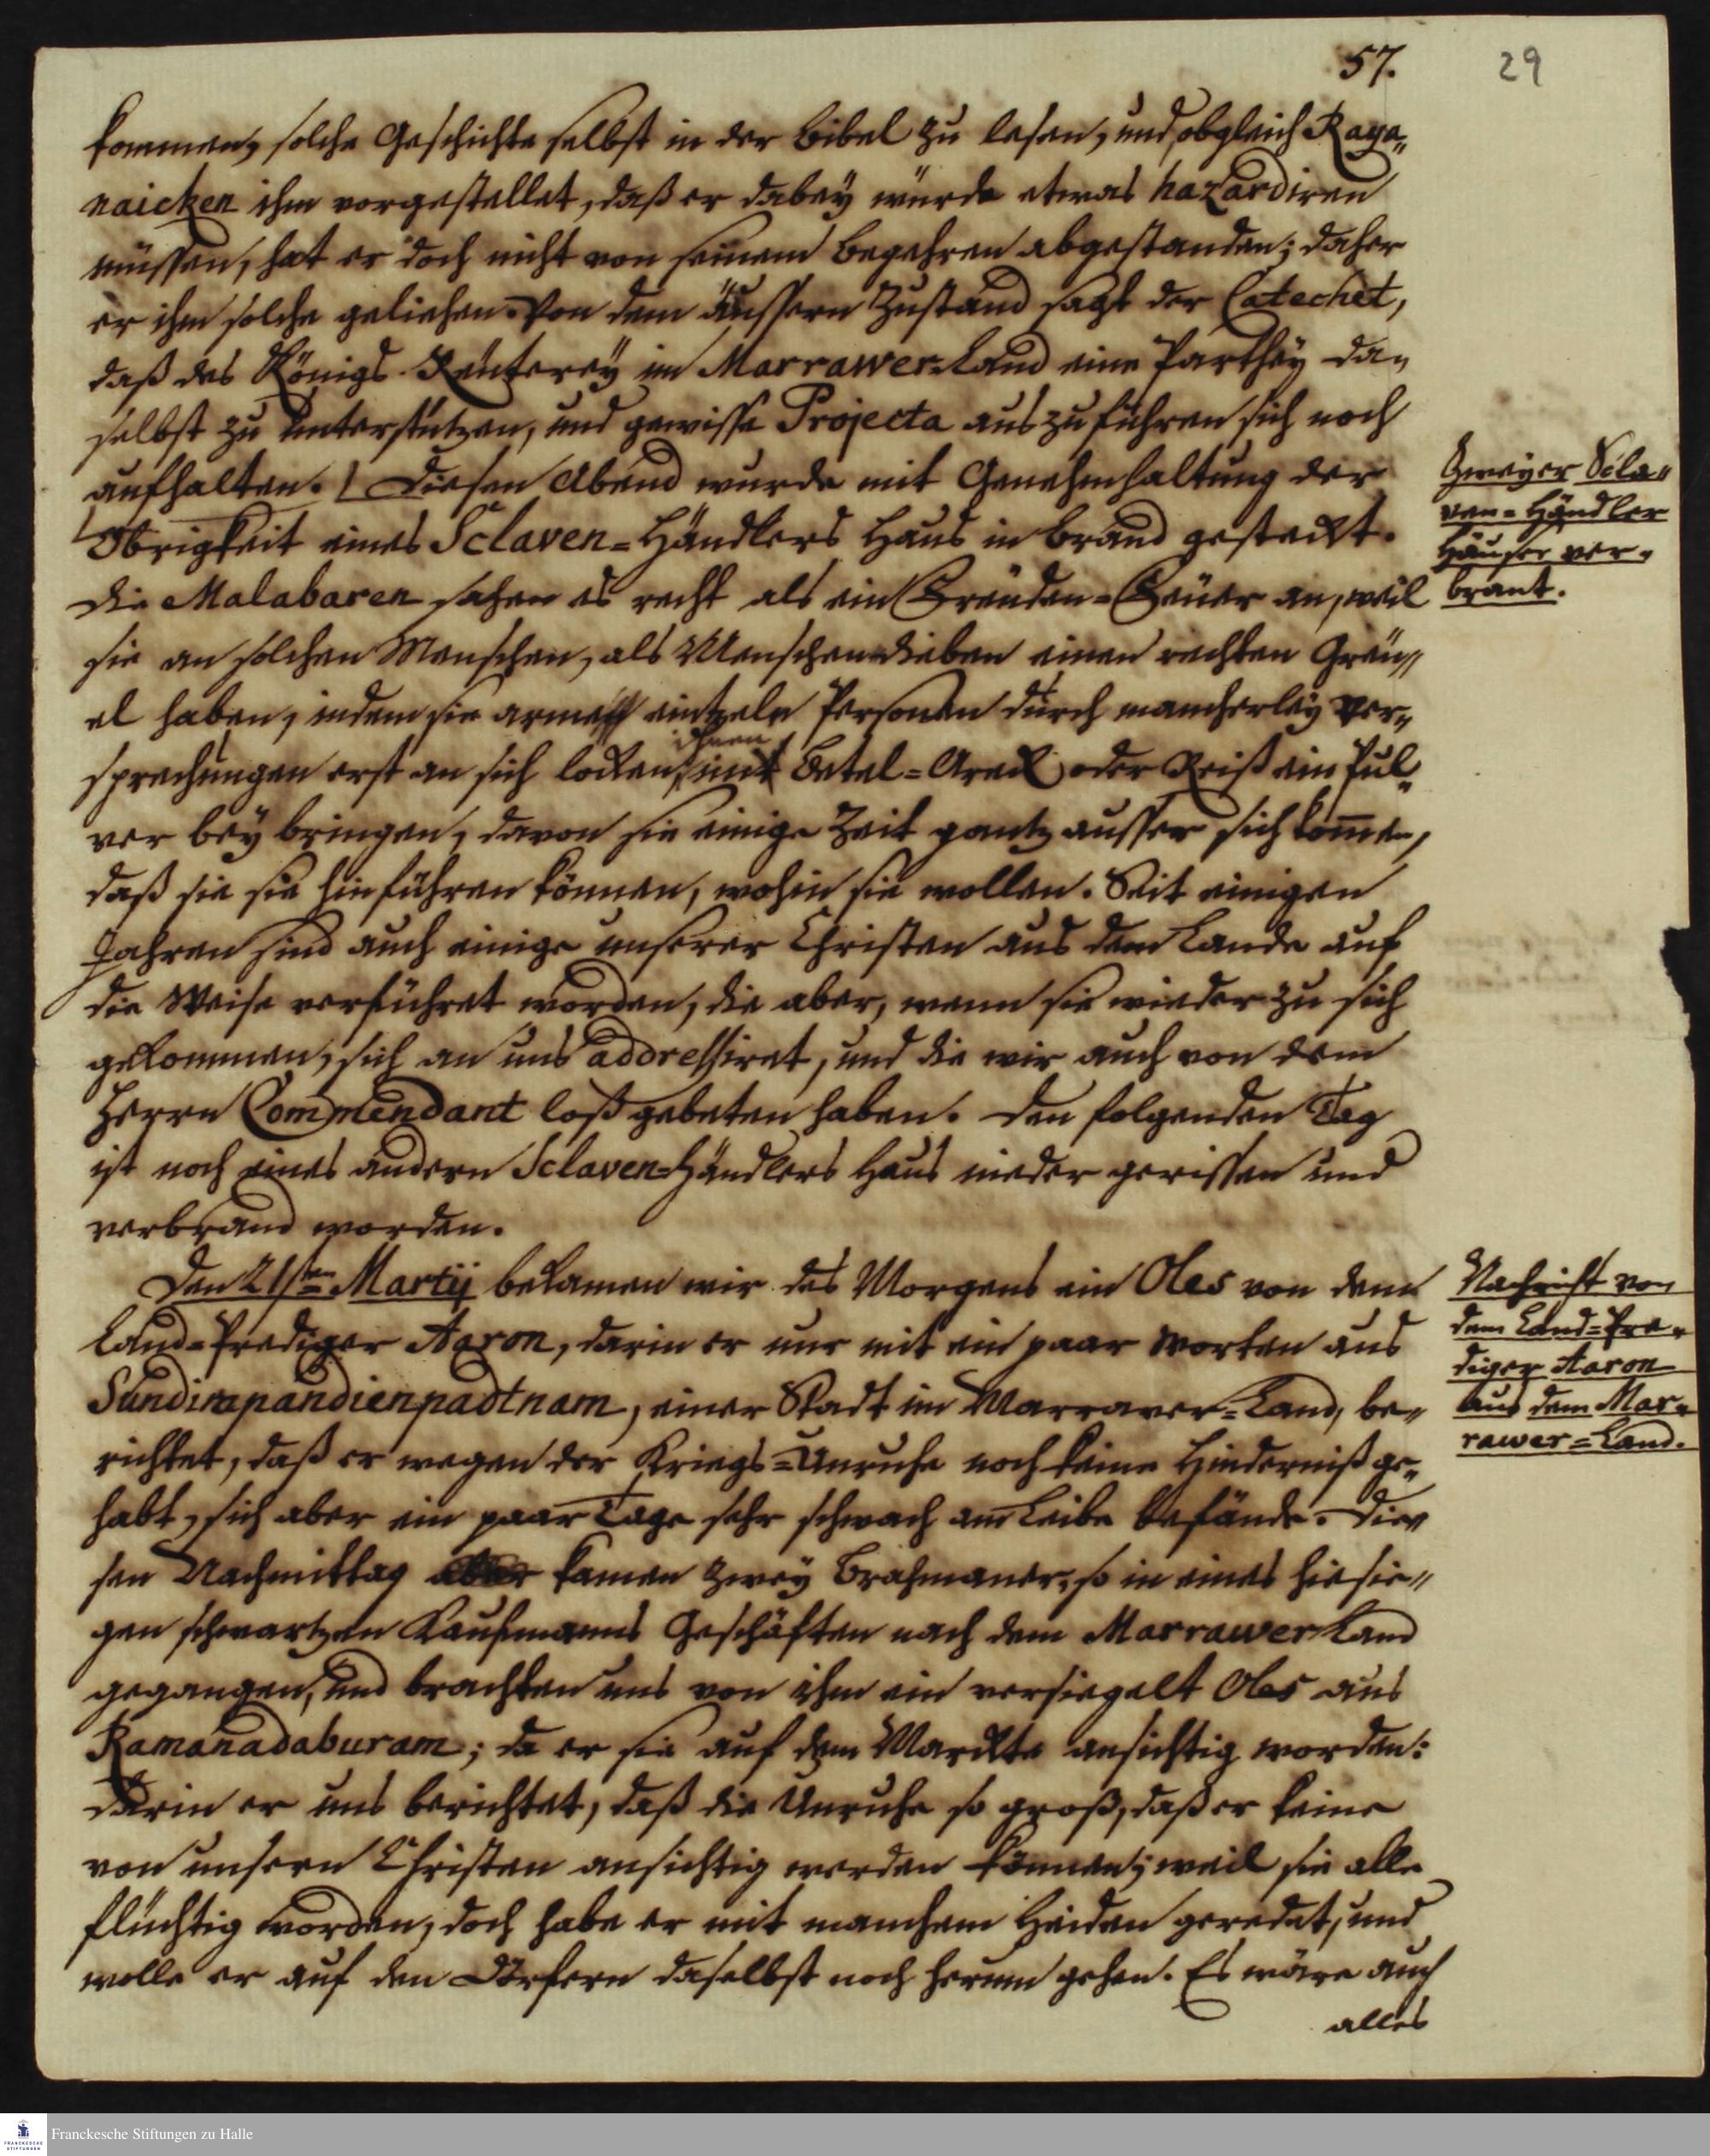 57.
29
kommen, solche Geschichte selbst in der Bibel zu lesen, und obgleich Raya„
naicken ihm vorgestellet, daß er dabey würde etwas hazardiren
müssen, hat er doch nicht von seinem Begehren abgestanden; daher
er ihm solche geliehen. Von dem äussern Zustand sagt der Catechet,
daß des Königs Reuterey im Marrawer=Land eine Parthey da„
selbst zu unterstützen, und gewisse Projecta auszuführen sich noch
aufhalten. Diesen Abend wurde mit Genehmhaltung der
Obrigkeit eines Sclaven=Händlers Haus in Brand gesteckt.
Die Malabaren sahen es recht als ein Freuden=Feuer an, weil
sie an solchen Menschen, als Menschendieben einen rechten Greu„
el haben, indem sie arme eintzeln Personen durch mancherley Ver„
sprechungen erst an sich locken, ihnen mit Betel=Areck oder Reiß ein Pul„
ver bey bringen, davon sie einige Zeit gantz ausser sich kom̅en,
daß sie sie hinführen können, wohin sie wollen. Seit einigen
Jahren sind auch einige unserer Christen aus dem Lande auf
die Weise verführet worden, die aber, wenn sie wieder zu sich
gekommen, sich an uns addressiret, und die wir auch von dem
Herrn Commendant loß gebeten haben. Den folgenden Tag
ist noch eines andern Sclaven=Händlers Haus nieder gerissen und
verbrand worden.
Zweyer Scla„
ven=Händler
Häuser ver„
brant.
Den 21sten Martij bekamen wir des Morgens ein Oles von dem
Land=Prediger Aaron, darin er nur mit ein paar Worten aus
Sundirapandienpadtnam, einer Stadt im Marrawer=Land, be„
richtet, daß er wegen der Kriegs=Unruhe noch keine Hinderniß ge„
habt, sich aber ein paar Tage sehr schwach am Leibe befände. Die„
sen Nachmittag kamen zwey Brahmaner, so in eines hiesie„
gen schwartzen Kaufmanns Geschäften nach dem Marrawer Land
gegangen, und brachten uns von ihm ein versiegelt Oles aus
Ramanadaburam; da er sie auf dem Marckte ansichtig worden:
darin er uns berichtet, daß die Unruhe so groß, daß er keine
von unsern Christen ansichtig werden können, weil sie alle
flüchtig worden, doch habe er mit manchem Heiden geredet, und
wolle er auf den Dörfern daselbst noch herum gehen. Es wäre auch
alles
Nachricht von
dem Land=Pre„
diger Aaron
aus dem Mar„
rawer=Land.
FRANCKESCHE
STIFTUNGEN
Franckesche Stiftungen zu Halle